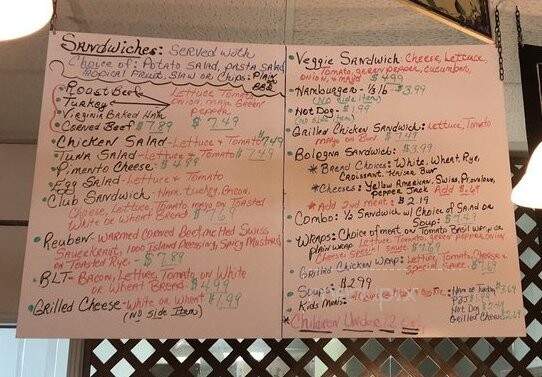 Sandwiches: Served with
Choice of: Potato Salad, pasta salad
Tropical Fruit, Slaw or Chips: Plain
BBQ
Roast Beef
Turkey
Virginia Baked Ham
Corned Beef $7.89
Lettuce Tomato
onion, mayo Green
pepper
$7.49
Chicken Salad - Lettuce & Tomato $7.49
Tuna Salad - Lettuce & Tomato $7.49
Pimento Cheese - $4.89
Egg Salad - Lettuce & Tomato
Club Sandwich - Ham, turkey, Bacon,
Cheese, Lettuce, Tomato mayo on Toasted
White or Wheat Bread $7.69
Reuben - Warmed Corned Beef, melted Swiss
Sauerkraut, 1000 Island Dressing, Spicy Mustard
on Toasted Rye - $7.89
BLT - Bacon, Lettuce, Tomato, on White
or Wheat Bread $4.99
Grilled Cheese - White or Wheat $1.99
(No side Item)
Veggie Sandwich: Cheese, Lettuce
Tomato, green pepper, cucumber,
onion, & mayo $4.99
Hamburger - 1/3 lb $3.99
(No side item)
Hot Dog - $1.99
(No side Item)
Grilled Chicken Sandwich: Lettuce, Tomato
mayo on Bun $7.49
Bologna Sandwich: $3.99
* Bread Choices: White, Wheat, Rye,
Croissant, Kaiser Bun
* Cheeses: Yellow American, Swiss, Provolone,
Pepper Jack Add $.69
* Add 2nd meat: $2.19
Combo: 1/2 Sandwich w/ Choice of Salad or
Soup: $7.49
Wraps: Choice of meat on Tomato Basil wrap or
plain wrap Lettuce Tomato, green pepper, onion
Cheese, special sauce $7.69
Grilled Chicken Wrap: Lettuce, Tomato, Cheese &
Special sauce $7.69
Soups: $2.99
Kids Meals:
Ham or Turkey $3.69
PB&J $1.99
Hot Dog $2.49
Grilled Cheese $2.69
* Children Under 12